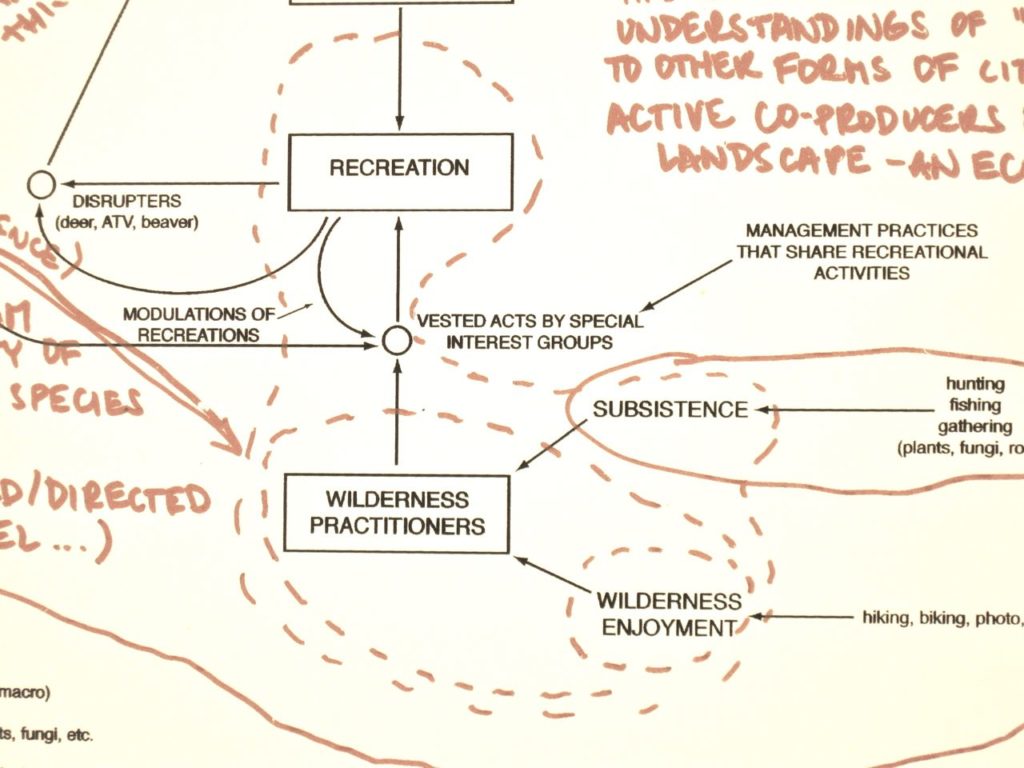 THI
UNDERSTANDINGS OF "
TO OTHER FORMS OF CIT
ACTIVE CO-PRODUCERS
LANDSCAPE - AN ECO
RECREATION
DISRUPTERS
(deer, ATV, beaver)
ENCE)
MODULATIONS OF
RECREATIONS
MANAGEMENT PRACTICES
THAT SHARE RECREATIONAL
ACTIVITIES
VESTED ACTS BY SPECIAL
INTEREST GROUPS
AM
Y OF
SPECIES
SUBSISTENCE
hunting
fishing
gathering
(plants, fungi, ro
ED/DIRECTED
EL ...)
WILDERNESS
PRACTITIONERS
WILDERNESS
ENJOYMENT
hiking, biking, photo,
macro)
ts, fungi, etc.